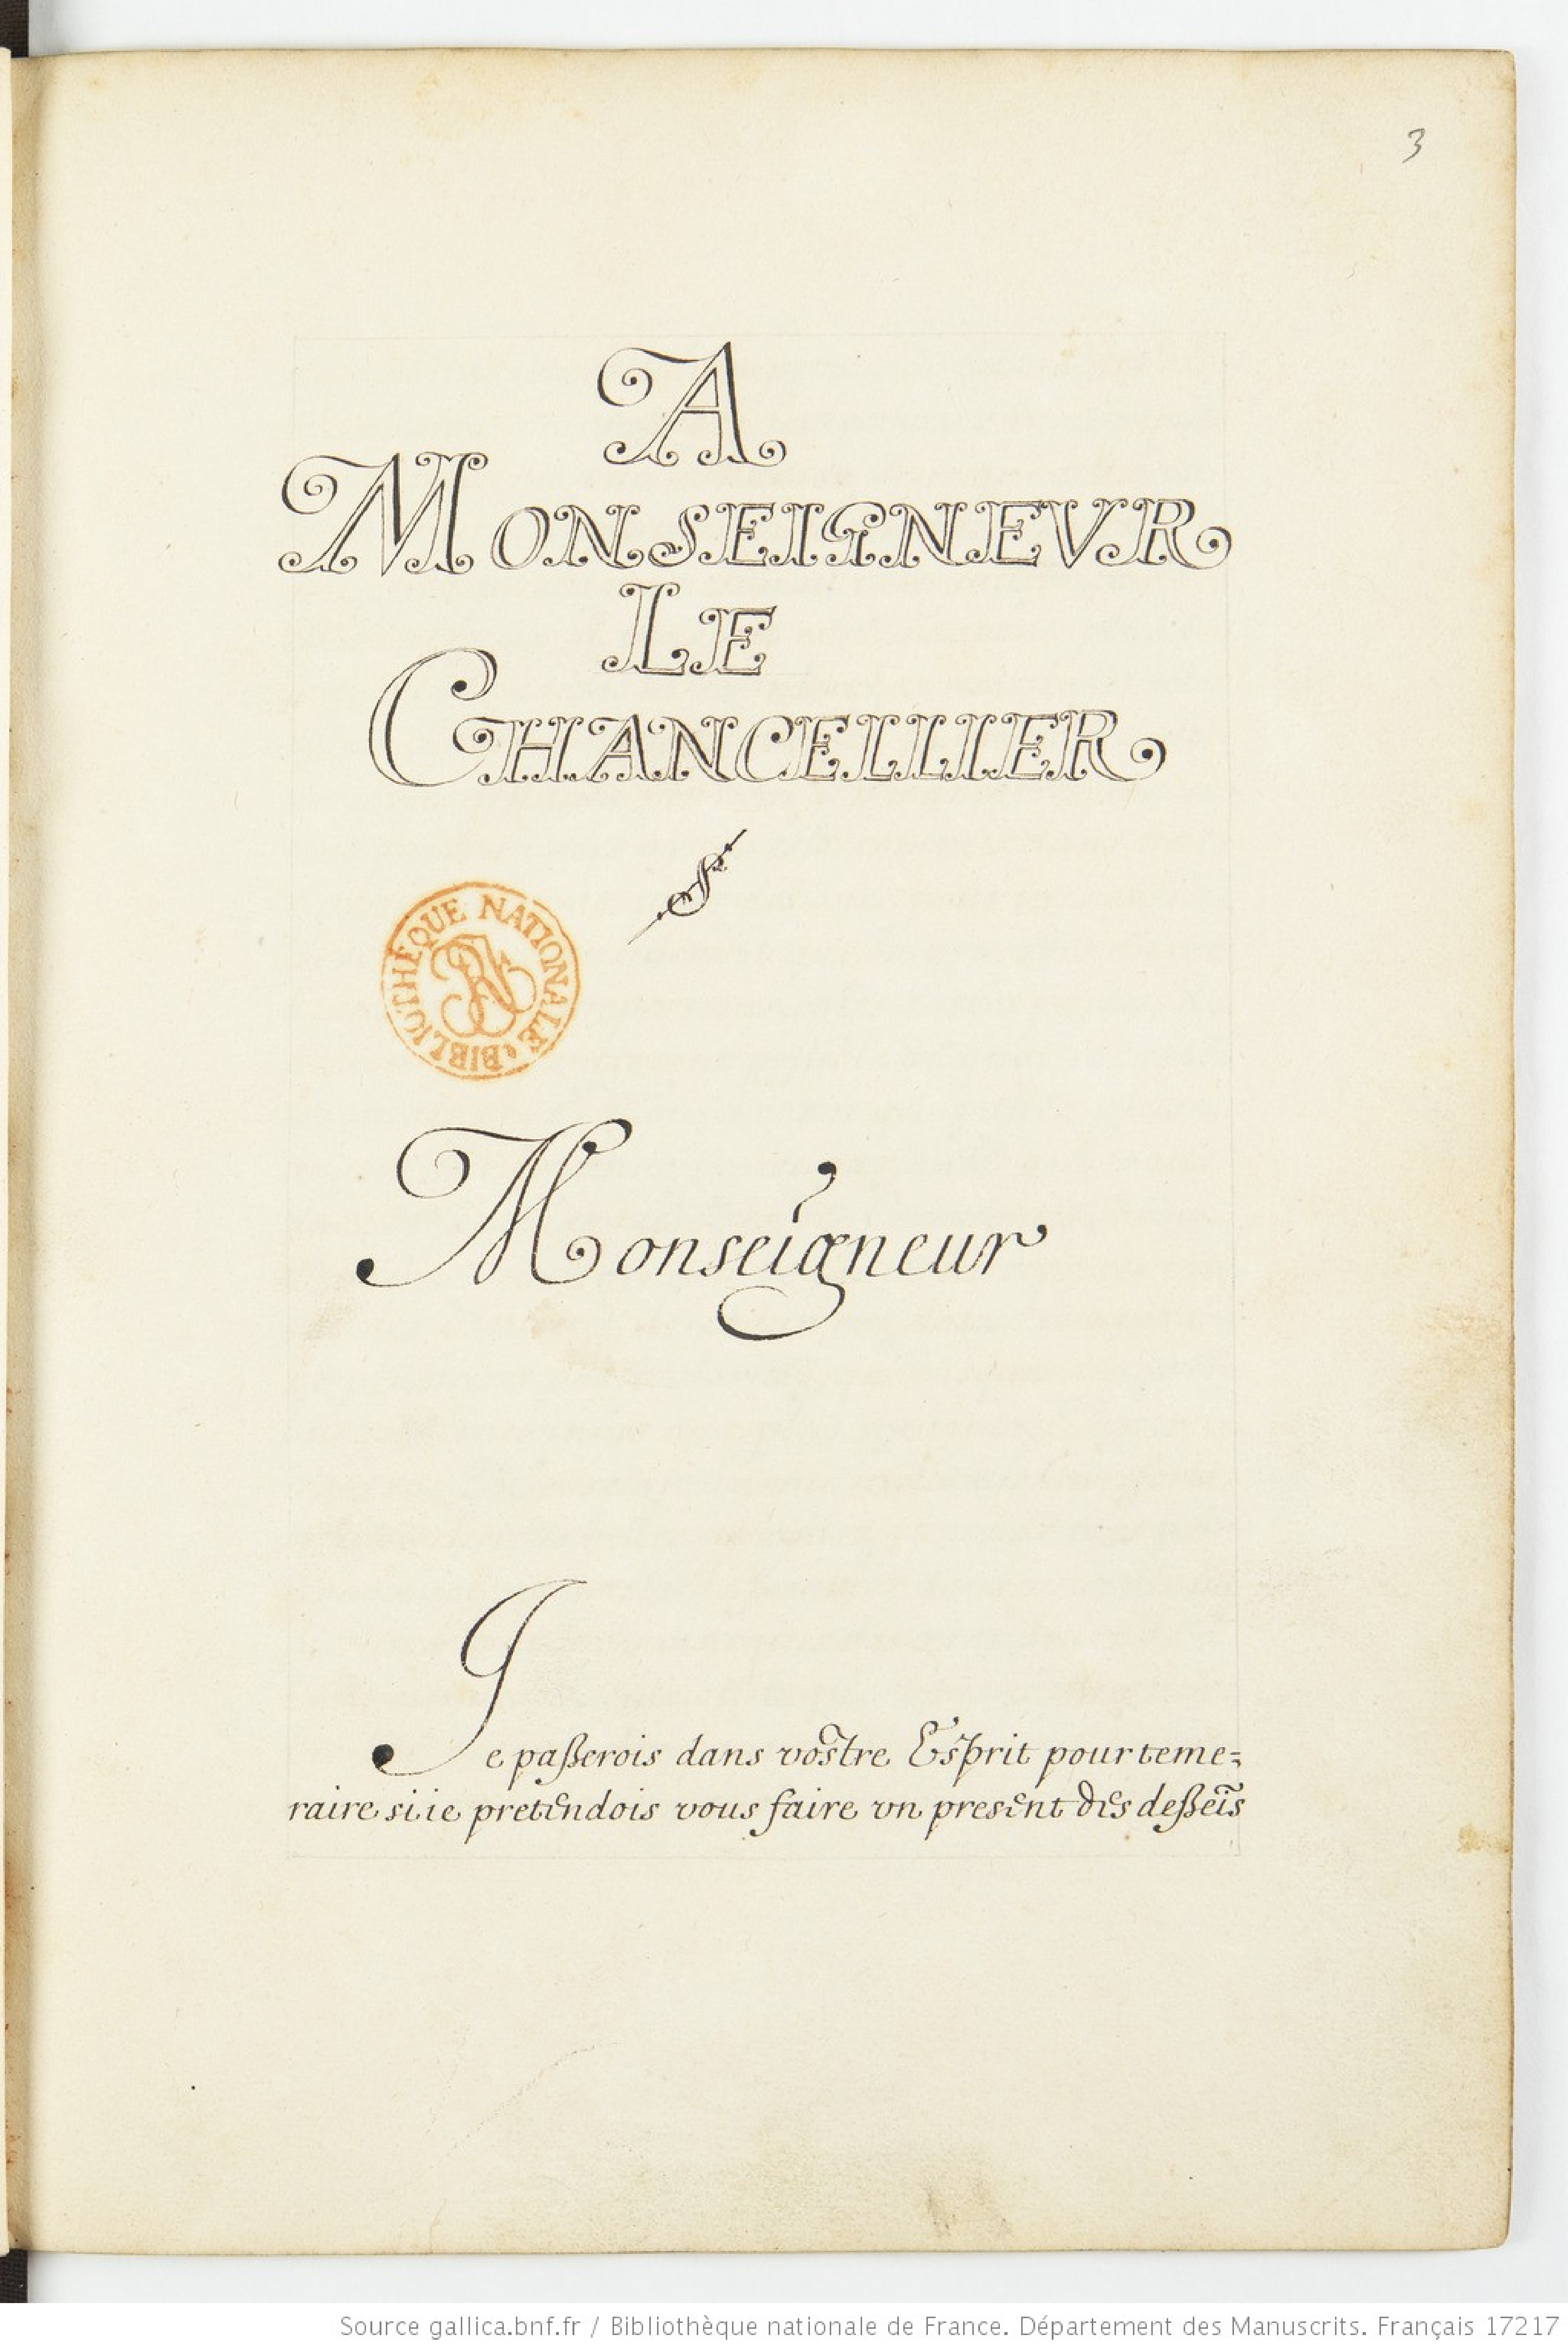 3
A
MONSEIGNEVR
LE
CHANCELLIER
BIBLIOTHÈQUE NATIONALE
BN
Monseigneur
Je paßerois dans vostre Esprit pour teme=
raire si ie pretendois vous faire vn present des deßeĩs
Source gallica.bnf.fr / Bibliothèque nationale de France. Département des Manuscrits. Français 17217